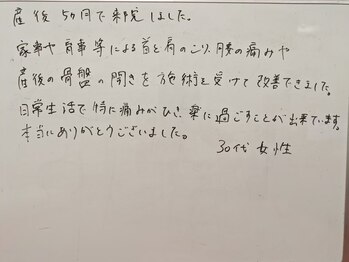 産後5ヶ月で来院しました。
家事や育事等による首と肩のこり、腰の痛みや
産後の骨盤の開きを施術を受けて改善できました。
日常生活で特に痛みがひき、楽に過ごすことが出来ています。
本当にありがとうございました。
30代 女性